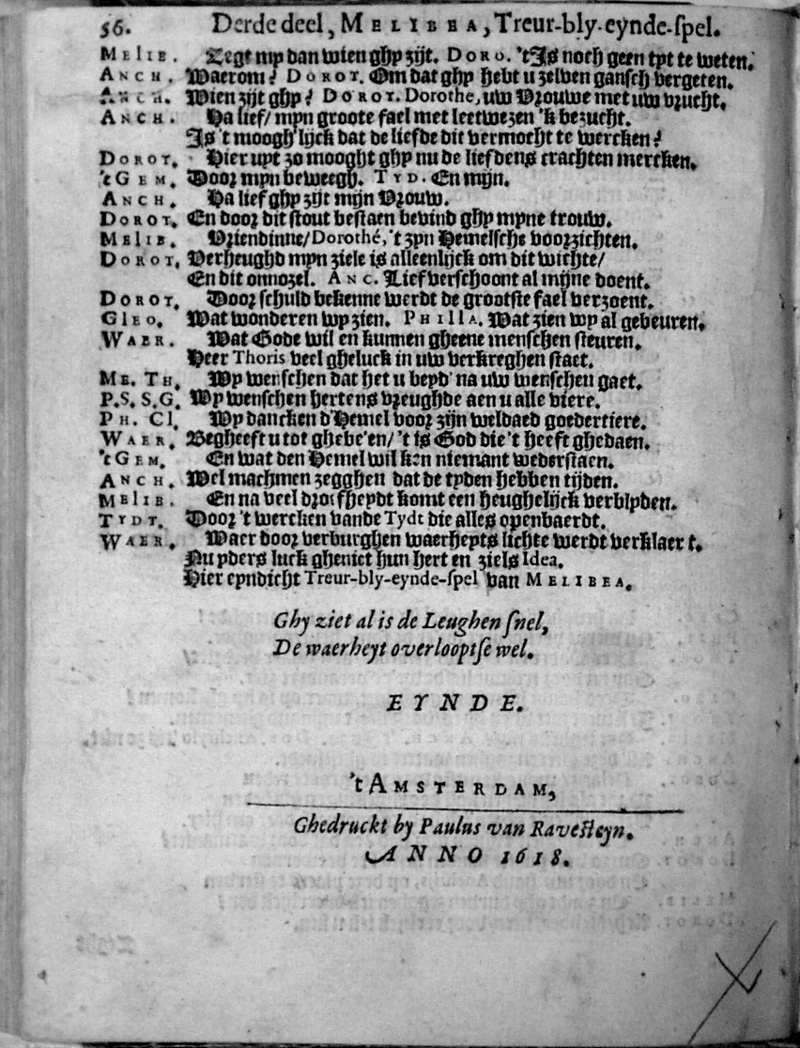 56. Derde deel, MELIBEA, Treur-bly-eynde-spel.
MELIB. Zegt my dan wien ghy zijt. DORO. 'tIs noch geen tyt te weten.
ANCH. Waerom? DOROT. Om dat ghy hebt u zelven gansch vergeten.
ANCH. Wien zijt ghy? DOROT. Dorothe, uw Vrouwe met uw vrucht.
ANCH. Ha lief/ mijn groote fael met leetwezen 'k bezucht.
Is 't moogh'lijck dat de liefde dit vermocht te wercken?
DOROT. Hier uyt zo mooght ghy nu de liefdens crachten mercken.
'tGEM. Door mijn beweegh. TYD. En mijn.
ANCH. Ha lief ghy zijt mijn Vrouw.
DOROT. En door dit stout bestaen bevind ghy mijne trouw.
MELIB. Vriendinne/ Dorothé, 't zijn Hemelsche voorzichten.
DOROT. Verheughd mijn ziele is alleenlijck om dit wichte/
En dit onnozel. ANC. Lief verschoont al mijne doent.
DOROT. Door schuld bekenne werdt de grootste fael verzoent.
CLEO. Wat wonderen wy zien. PHILLA. Wat zien wy al gebeuren.
WAER. Wat Gode wil en kunnen gheene menschen steuren.
Heer Thoris veel gheluck in uw verkreghen staet.
ME. TH. Wy wenschen dat het u beyd' na uw wenschen gaet.
P.S. S.G. Wy wenschen hertens vreughde aen u alle viere.
PH. CL. Wy dancken d'Hemel voor zijn weldaed goedertiere.
WAER. Begheeft u tot ghebe'en/ 't is God die 't heeft ghedaen.
'tGEM. En wat den Hemel wil ken niemant wederstaen.
ANCH. Wel machmen zegghen dat de tyden hebben tijden.
MELIB. En na veel droefheydt komt een heughelijck verblyden.
TYDT. Door 't wercken vande Tydt die alles openbaerdt.
WAER. Waer door verburghen waerheyts lichte werdt verklaert.
Nu yders luck gheniet hun hert en ziels Idea.
Hier eyndicht Treur-bly-eynde-spel van MELIBEA.
Ghy ziet al is de Leughen snel,
De waerheyt overlooptse wel.
EYNDE.
'tAMSTERDAM,
Ghedruckt by Paulus van Ravesteyn.
ANNO 1618.